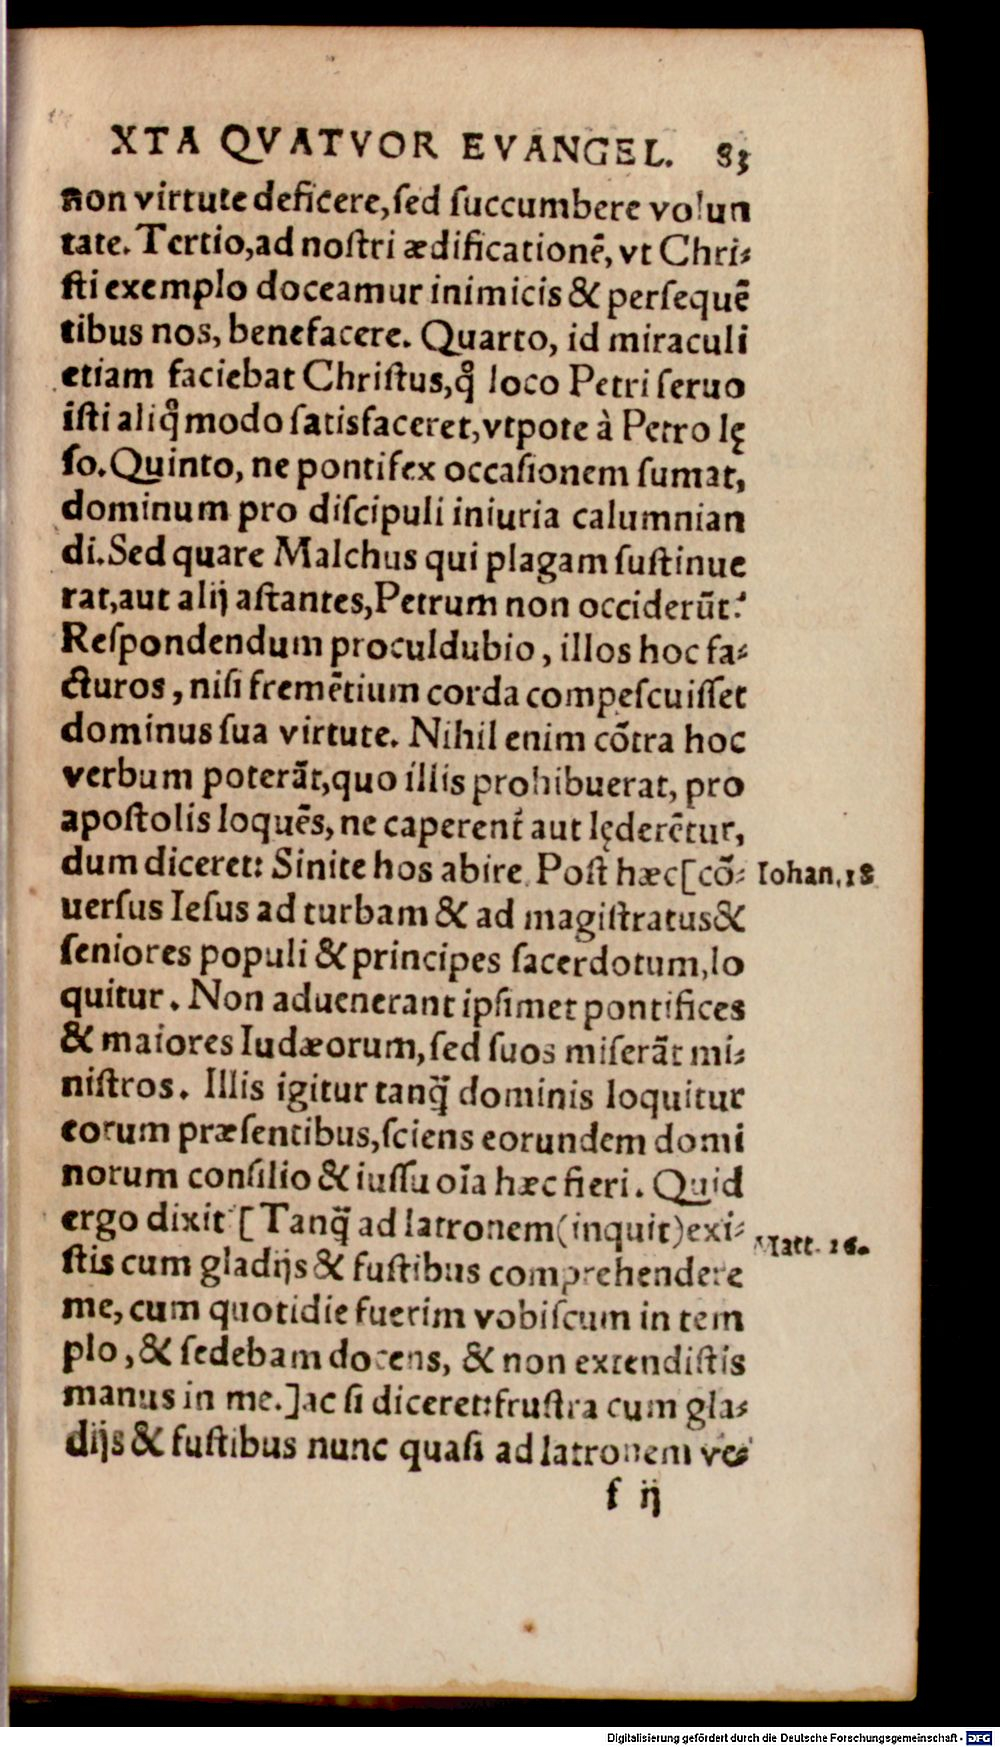 XTA QVATVOR EVANGEL. 83
non virtute deficere, ſed ſuccumbere volun
tate. Tertio, ad noſtri ædificationẽ, vt Chri⸗
ſti exemplo doceamur inimicis & perſequẽ
tibus nos, benefacere. Quarto, id miraculi
etiam faciebat Chriſtus, qͦ loco Petri ſeruo
iſti aliqͦ modo ſatisfaceret, vtpote à Petro lę
ſo. Quinto, ne pontifex occaſionem ſumat,
dominum pro diſcipuli iniuria calumnian
di. Sed quare Malchus qui plagam ſuſtinue
rat, aut alij aſtantes, Petrum non occiderũt?
Reſpondendum proculdubio, illos hoc fa⸗
cturos, niſi fremẽtium corda compeſcuiſſet
dominus ſua virtute. Nihil enim cõtra hoc
verbum poterãt, quo illis prohibuerat, pro
apoſtolis loquẽs, ne caperent᷑ aut lęderẽtur,
dum diceret: Sinite hos abire. Poſt hæc [cõ⸗
Iohan. 18
uerſus Ieſus ad turbam & ad magiſtratus &
ſeniores populi & principes ſacerdotum, lo
quitur. Non aduenerant ipſimet pontifices
& maiores Iudæorum, ſed ſuos miſerãt mi⸗
niſtros. Illis igitur tanq̃ dominis loquitur
eorum præſentibus, ſciens eorundem domi
norum conſilio & iuſſu oĩa hæc fieri. Quid
ergo dixit? [Tanq̃ ad latronem (inquit) exi⸗
Matt. 26.
ſtis cum gladijs & fuſtibus comprehendere
me, cum quotidie fuerim vobiſcum in tem
plo, & ſedebam docens, & non extendiſtis
manus in me.] ac ſi diceret: fruſtra cum gla⸗
dijs & fuſtibus nunc quaſi ad latronem ve⸗
f ij
Digitalisierung gefördert durch die Deutsche Forschungsgemeinschaft - DFG